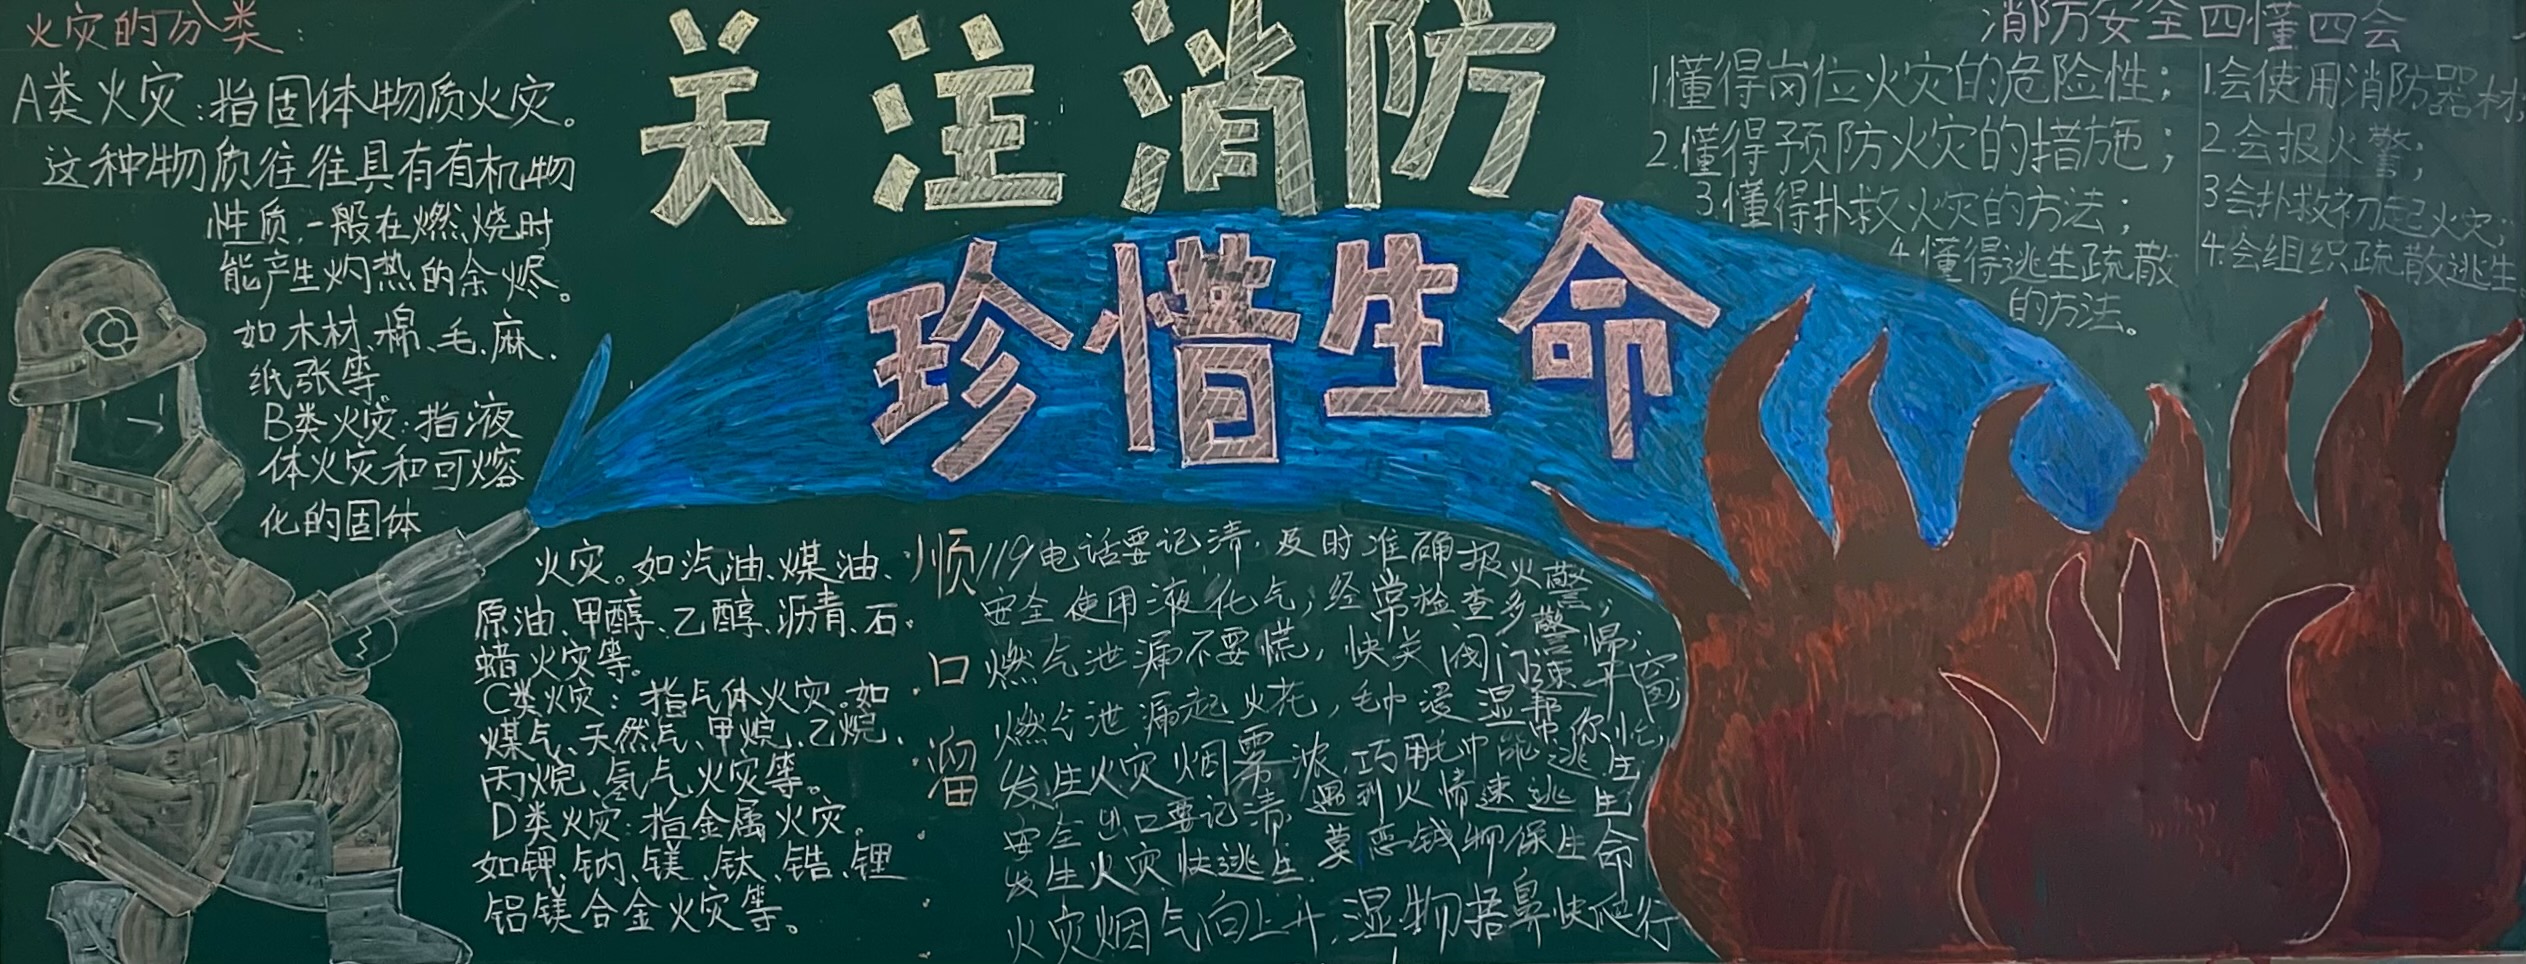 关注消防
珍惜生命
火灾的分类：
A类火灾：指固体物质火灾。
这种物质往往具有有机物
性质，一般在燃烧时
能产生灼热的余烬。
如木材、棉、毛、麻、
纸张等。
B类火灾：指液
体火灾和可熔
化的固体
火灾。如汽油、煤油、
原油、甲醇、乙醇、沥青、石
蜡火灾等。
C类火灾：指气体火灾。如
煤气、天然气、甲烷、乙烷、
丙烷、氢气火灾等。
D类火灾：指金属火灾。
如钾、钠、镁、钛、锆、锂
铝镁合金火灾等。
顺口溜
119电话要记清，及时准确报火警；
安全使用液化气，经常检查多警惕；
燃气泄漏不要慌，快关阀门速开窗；
燃气泄漏起火花，毛巾浸湿帮你忙；
发生火灾烟雾浓，巧用毛巾能逃生
安全出口要记清，遇到火情速逃生
发生火灾快逃生，莫恋钱物保生命
火灾烟气向上升，湿物捂鼻快爬行
消防安全四懂四会
1.懂得岗位火灾的危险性；
2.懂得预防火灾的措施；
3.懂得扑救火灾的方法；
4.懂得逃生疏散
的方法。
1.会使用消防器材；
2.会报火警；
3会扑救初起火灾；
4.会组织疏散逃生